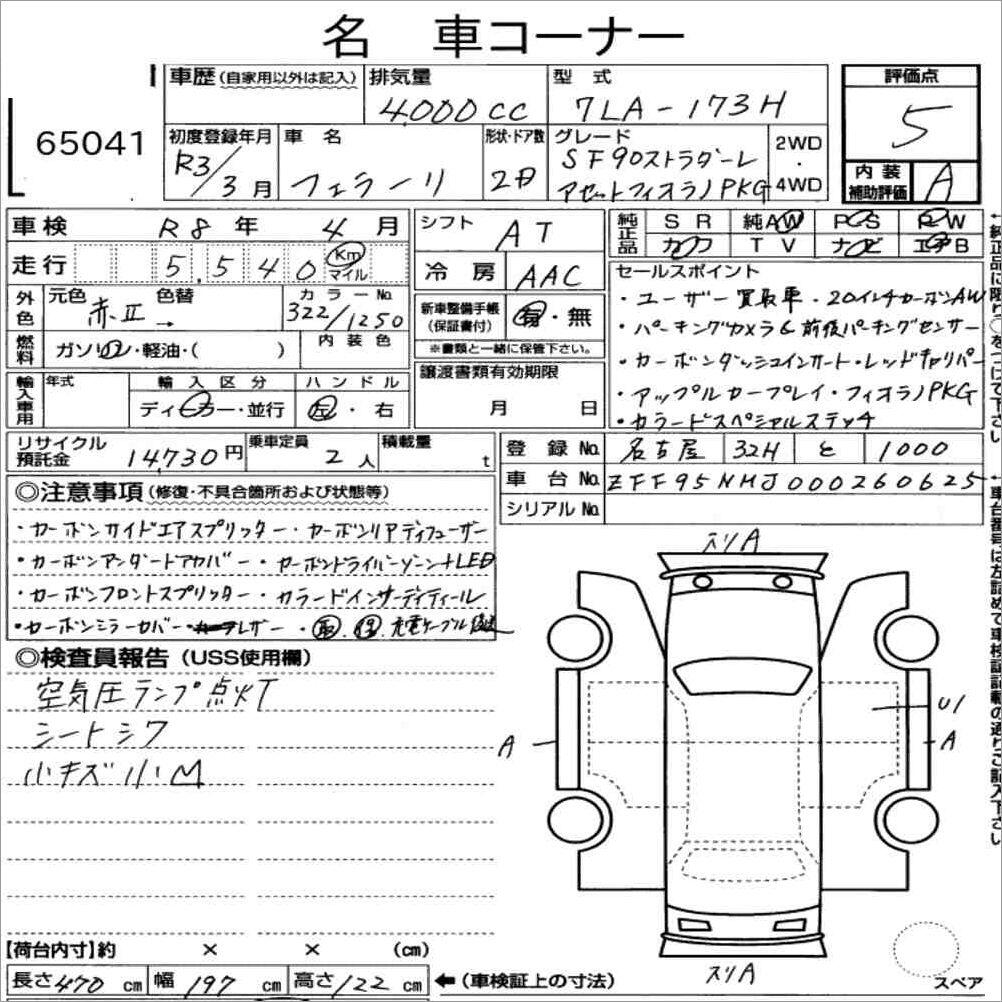 名 車コーナー
65041
車歴 (自家用以外は記入)
排気量
4,000 cc
型 式
7LA-173H
評価点
5
初度登録年月
R3/3月
車 名
フェラーリ
形状・ドア数
2D
グレード
SF90ストラダーレ
アセットフィオラノPKG
2WD
・
4WD
内 装
補助評価
A
車 検 R8 年 4 月
走 行 5,540 Km マイル
シフト AT
冷 房 AAC
純正品
SR 純AW PS PW
カワ TV ナビ エアB
外色
元色 赤II
色替 →
カラーNo 322/1250
新車整備手帳
(保証書付)
有・無
※書類と一緒に保管下さい。
燃料
ガソリン・軽油・( )
内 装 色
輸入車用
年式
輸 入 区 分
ディーラー・並行
ハ ン ド ル
左・右
譲渡書類有効期限
月 日
セールスポイント
・ユーザー買取車・20インチカーボンAW
・パーキングカメラ&前後パーキングセンサー
・カーボンダッシュインサート・レッドキャリパー
・アップルカープレイ・フィオラノPKG
・カラードスペシャルステッチ
リサイクル
預託金
14,730円
乗車定員
2人
積載量
t
登 録 No. 名古屋 32H と 1000
車 台 No. ZFF95NMJ000260625
シリアル No.
◎注意事項 (修復・不具合箇所および状態等)
・カーボンサイドエアスプリッター・カーボンリアディフューザー
・カーボンアンダードアカバー・カーボンドライバーゾーン+LED
・カーボンフロントスプリッター・カラードインサーディティール
・カーボンミラーカバー・レザー・取・保・充電ケーブル
◎検査員報告 (USS使用欄)
空気圧ランプ点灯
シートシワ
小キズ小凹
スリA
A
U1
A
スリA
スペア
【荷台内寸】約 × × (cm)
長さ 470 cm 幅 197 cm 高さ 122 cm ←(車検証上の寸法)
↑純正品に限り○をつけて下さい
↑車台番号は左詰めで車検証記載の通りご記入下さい